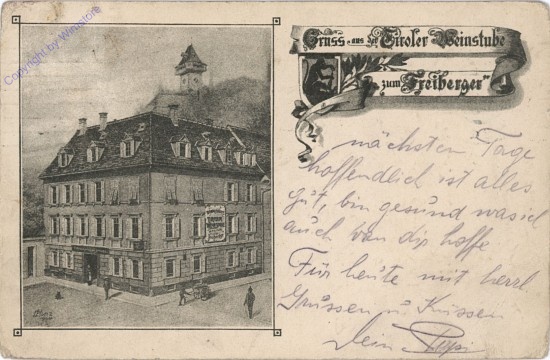 Copyright by Winstore
Gruss aus der Tiroler Weinstube
"zum Freiberger"
nächsten Tage
hoffendlich ist alles
gut, bin gesund was ich
auch von dir hoffe
Für heute mit herzl
Grüssen u. Küssen
Dein Pepi